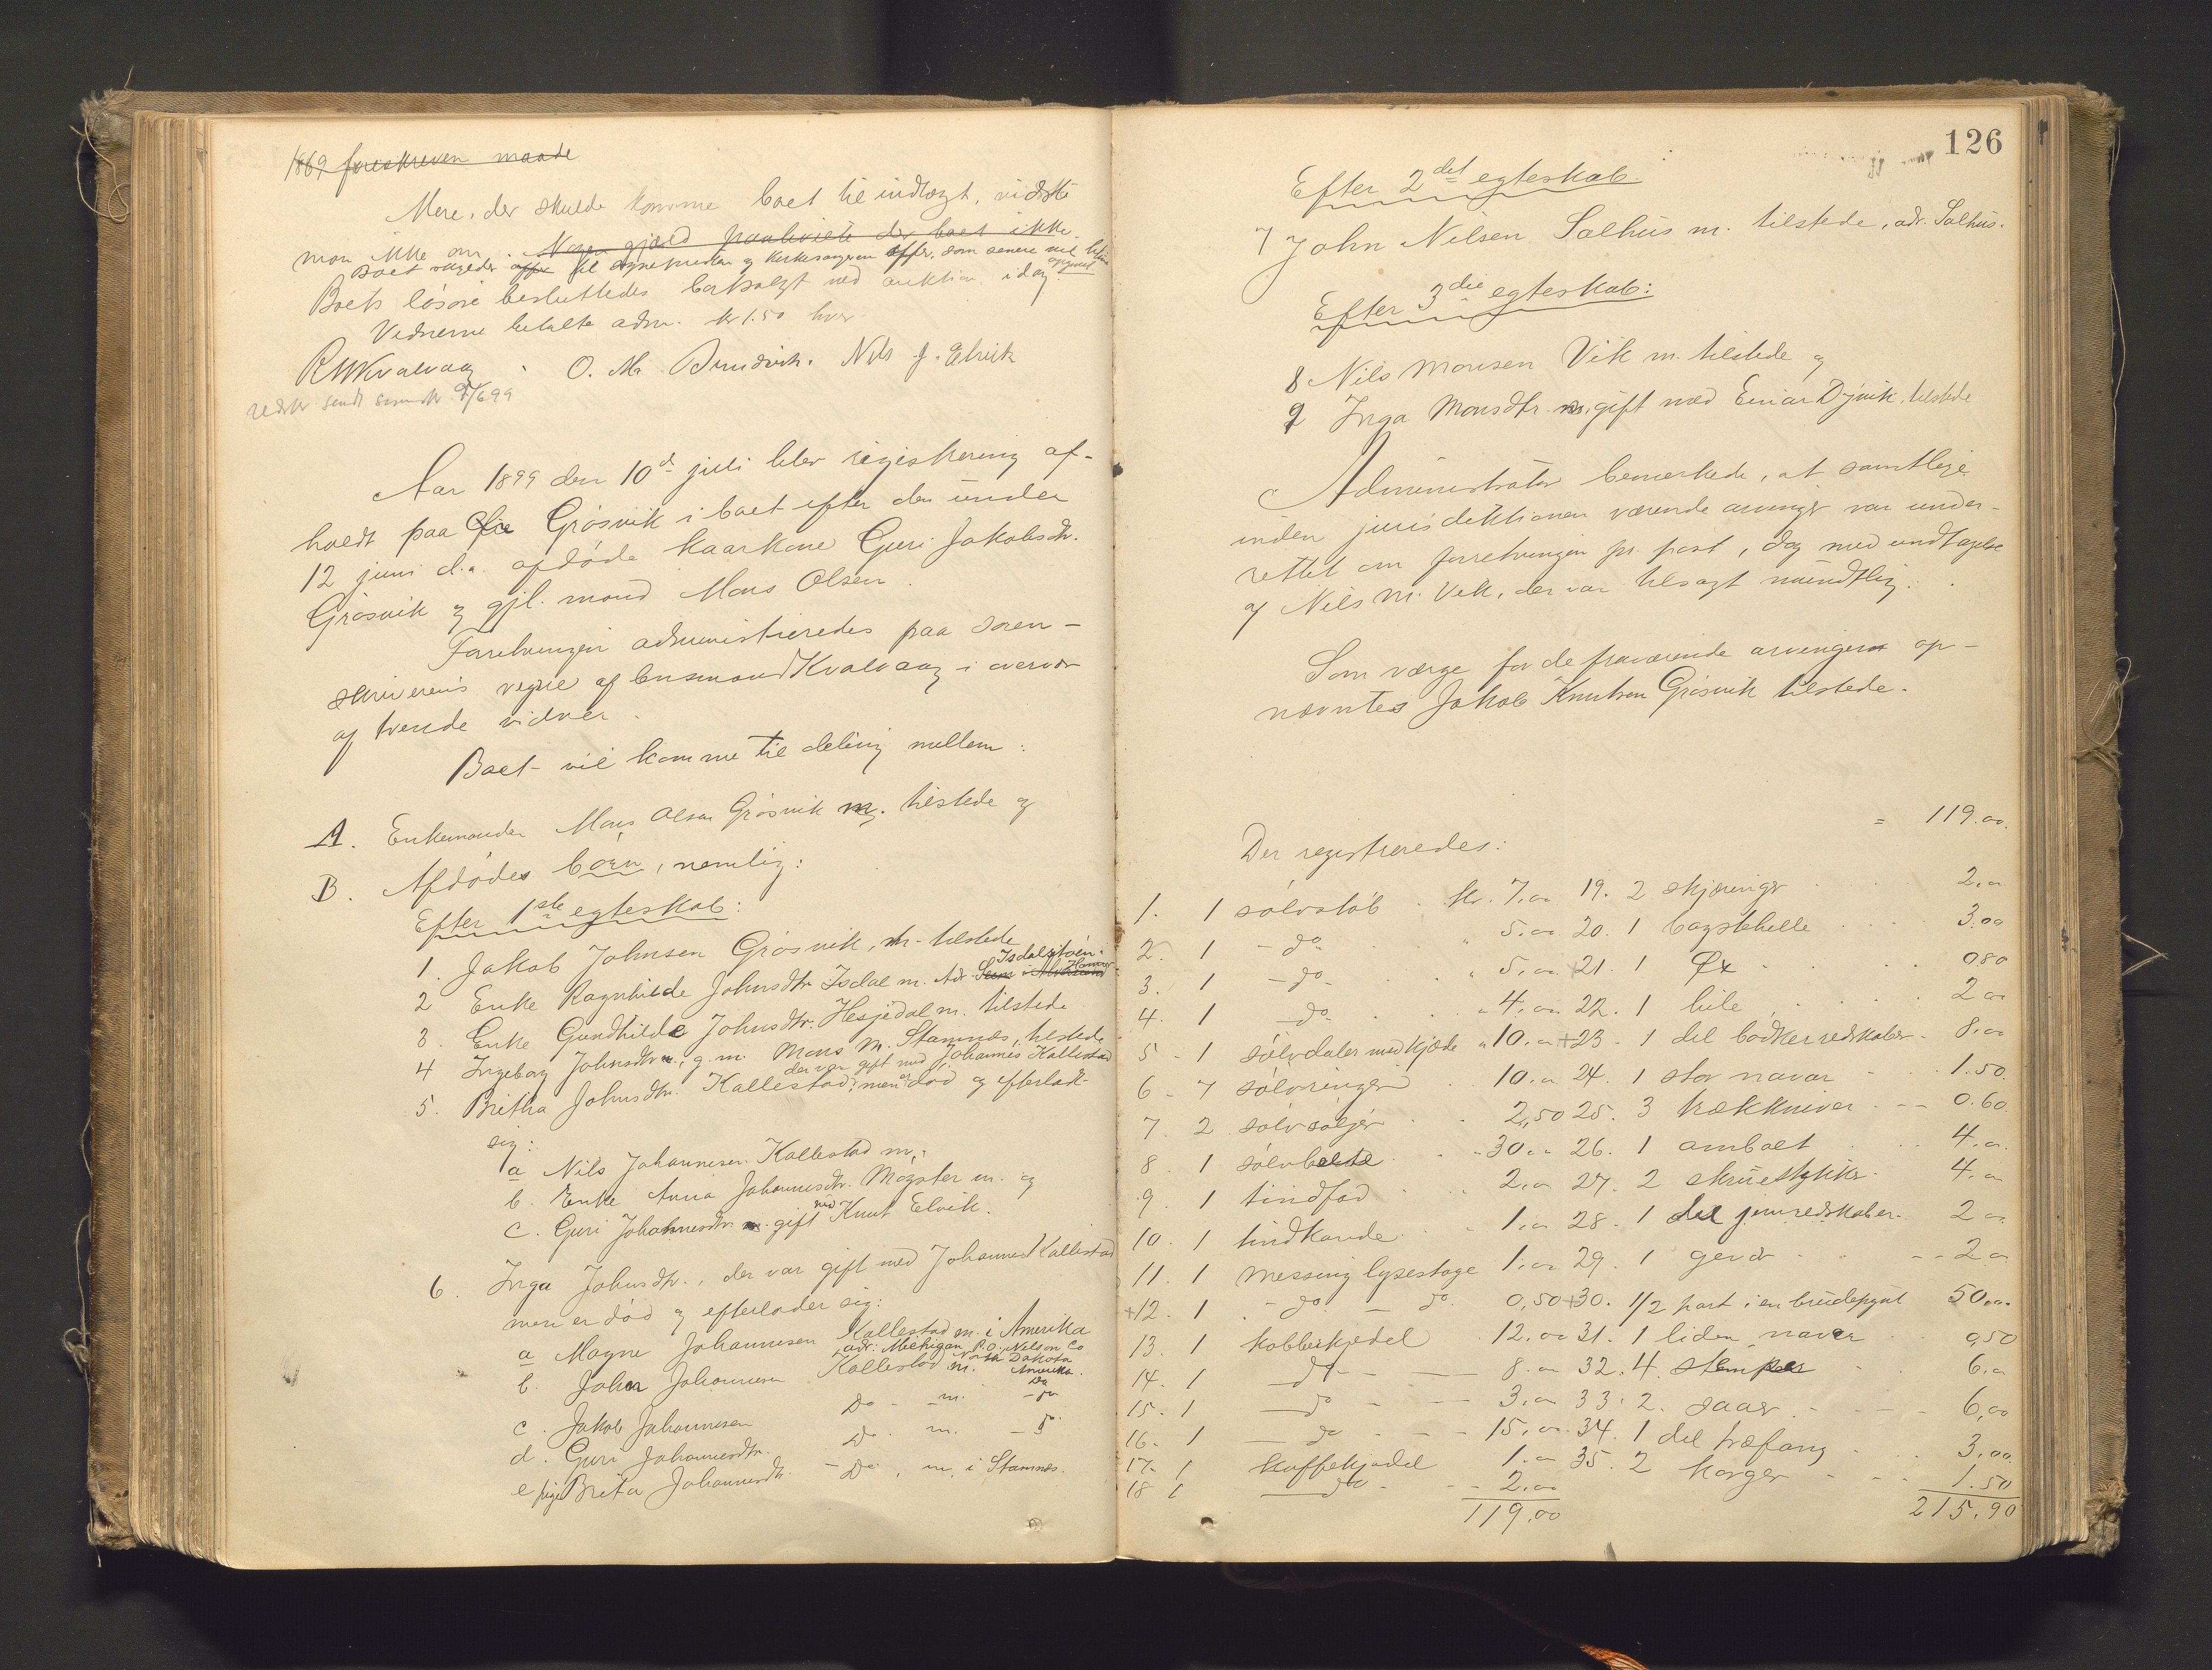 1869 foreskreven maade
Mere, der skulde komme boet til indtægt, vidste
man ikke om. Nogen gjæld paahvilte der boet ikke.
Boet vagedes offer til sogneprest og kirkesangeren offer, som senere vil blive opgivet
Boets løsøre besluttedes bortsolgt ved auktion idag.
Vidnerne betalte adm. kr 1.50 hver
RMKvalvaag. O. M. Bruvik. Nils J. Elvik
sendt 9/6 99
Aar 1899 den 10de juli blev registrering af-
holdt paa Øvre Grøsvik i boet efter den under
12 juni d.a. afdøde kaarkone Guri Jakobsdtr.
Grøsvik og gjl. mand Mons Olsen.
Forretningen administreredes paa soren-
skriverens vegne af lensmand Kvalvaag i overvær
af tvende vidner.
Boet vil komme til deling mellem:
A. Enkemanden Mons Olsen Grøsvik m. tilstede og
B. Afdødes børn, nemlig:
Efter 1ste egteskab:
1. Jakob Johnsen Grøsvik, m. tilstede
Isdalstøen
Hammer
2 Enke Ragnhilde Johnsdtr Isdal m. Adr.
3. Enke Gundhilde Johnsdtr. Hesjedal m. tilstede
4 Ingeborg Johnsdtr m., g. m. Mons M. Stamnes, tilstede
der var gift med Johannes Kallestad
5. Britha Johnsdtr. Kallestad, men er død og efterladt
sig:
a Nils Johannesen Kallestad m.
b. Enke Anna Johannesdtr. Møgster m. og
c. Guri Johannesdtr m. gift med Knut Elvik.
6. Inga Johnsdtr., der var gift med Johannes Kallestad
men er død og efterlader sig:
a Magne Johannesen Kallestad m. i Amerika
adr: Michigan P.O. Nelson Co
North Dakota
b. John Johannesen Kallestad m. Amerika.
c. Jakob Johannesen Do - m. - do
d. Guri Johannesdtr. Do. m. - do
e pige Brita Johannesdtr. - Do, m. i Stamnes.
126
Efter 2det egteskab.
7 John Nilsen Salhus m. tilstede, adr. Salhus.
Efter 3die egteskab:
8 Nils Monsen Vik m. tilstede og
9 Inga Monsdtr. m. gift med Einar Dyvik, tilstede
Administrator bemerkede, at samtlige
inden jurisdiktionen værende arvinger var under-
rettet om forretningen pr. post, dog med undtagelse
af Nils M. Vik, der var tilsagt mundtlig.
Som værge for de fraværende arvinger op-
nævntes Jakob Knutsen Grøsvik tilstede.
= 119.00.
Der registreredes:
1. 1 sølvstøb kr. 7.00 19. 2 skjæringer 2.00
2. 1 - do " 5.00 20. 1 bagstehelle 3.00
3. 1 - do - " 5.00 +21. 1 Øx 0.80
4. 1 - do " 4.00 22. 1 bile 2.00
5 - 1 sølvdaler med kjæde " 10.00 +23 - 1 del bødkerredskaber - 8.00
6 - 7 sølvringer 10.00 24. 1 stor navar 1.50
7. 2 sølvsøljer 2,50 25. 3 trækkniver - 0.60
8. 1 sølvbelte 30.00 26. 1 ambolt 4.00
9. 1 tindfad 2.00 27. 2 skruestykker 4.00
10. 1 tindkande 1.00 28. 1 del jernredskaber 2.00
11. 1 messing lysestage 1.00 29. 1 gevær 2.00
+12. 1 - do - do. 0,50 +30. 1/2 part i en brudepynt 50.00
13. 1 kobberkjedel 12.00 31. 1 liden navar 0,50
14. 1 - do - 8.00 32. 4 stemper 6.00
15. 1 - do - 3.00 33. 2. saaer 6,00
16. 1 - do - 15.00 34. 1 del træfang 3.00
17. 1 kaffekjedel 1.00 35. 2 korger 1.50
18 1 - do - 2.00
119.00 215.90